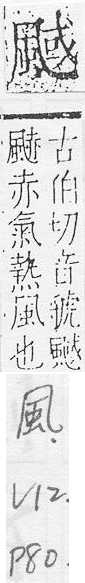 古伯切音虢
赤氣熱風也
風.
V12.
P80.